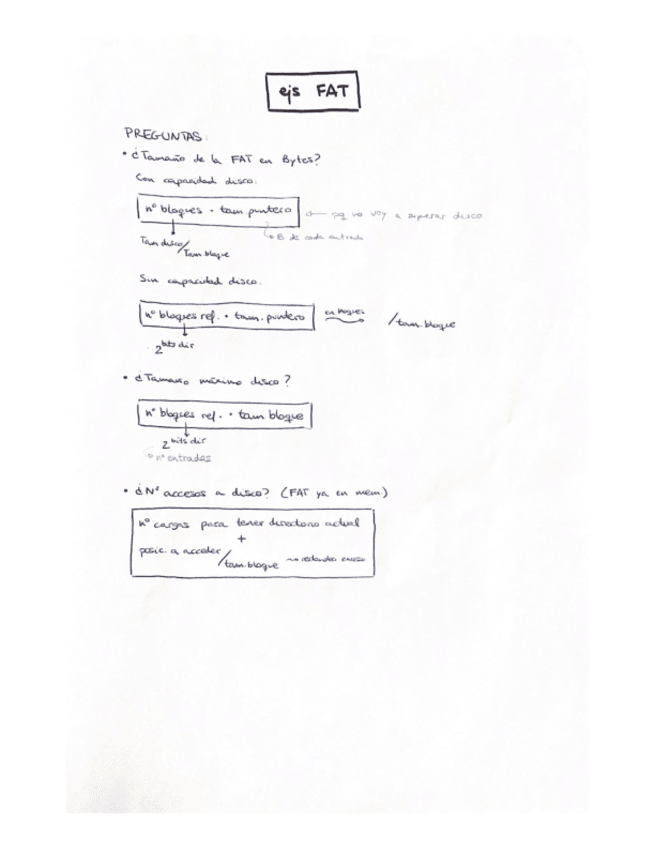 ejs FAT
PREGUNTAS:
• ¿Tamaño de la FAT en Bytes?
Con capacidad disco:
nº bloques · tam. puntero ← pq no voy a superar disco
Tam disco/Tam. bloque
B de cada entrada
Sin capacidad disco:
nº bloques ref. · tam. puntero en bloques /tam. bloque
2^bits dir
• ¿Tamaño máximo disco?
nº bloques ref. · tam bloque
2^bits dir
nº entradas
• ¿Nº accesos a disco? (FAT ya en mem)
nº cargas para tener directorio actual
+
posic. a acceder/tam. bloque → redondear exceso